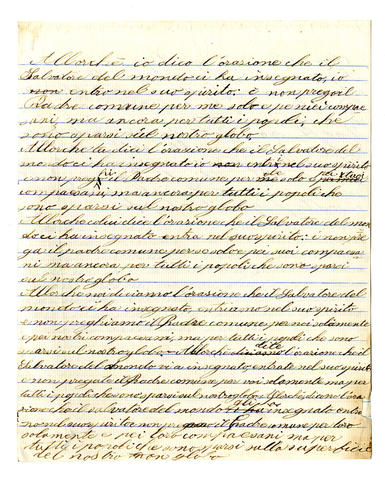 Allorchè io dico l'orazione che il
Salvatore del mondo ci ha insegnato, io
non entro nel suo spirito: e non prego il
Padre comune per me solo e pe miei compae
sani, ma ancora per tutti i popoli, che
sono sparsi sul nostro globo
Allorche tu dici l'orazione che il Salvatore del
mondo ci ha insegnato io non entri nel suo spirito
e non preghi il Padre comune per te solo e pei tuoi
compaesani, ma ancora per tutti i popoli che
sono sparsi sul nostro globo
Allorche colui dice l'orazione che il Salvatore del mon
do ci ha insegnato entra nel suo spirito: e non pre
ga il padre comune per se solo e pei suoi compaesa
ni ma ancora per tutti i popoli che sono sparsi
sul nostro globo
Allorche noi diciamo l'orazione che il Salvatore del
mondo ci ha insegnato, entriamo nel suo spirito
e non preghiamo il Padre comune per noi solamente
e pei nostri compaesani, ma per tutti i popoli che sono
sparsi sul nostro globo. Allorche dite l'orazione che il
Salvatore del mondo vi a insegnato, entrate nel suo spirito
e non pregate il Padre comune per voi solamente ma per
tutti i popoli che sono sparsi sul nostro globo. Allorche diano l'ora
zione che il salvatore del mondo gli ha insegnato entra
no nel suo spirito e non pregano il Padre comune per loro
solamente e pei loro compaesani ma per
tutti i popoli che sono sparsi sulla superficie
del nostro globo